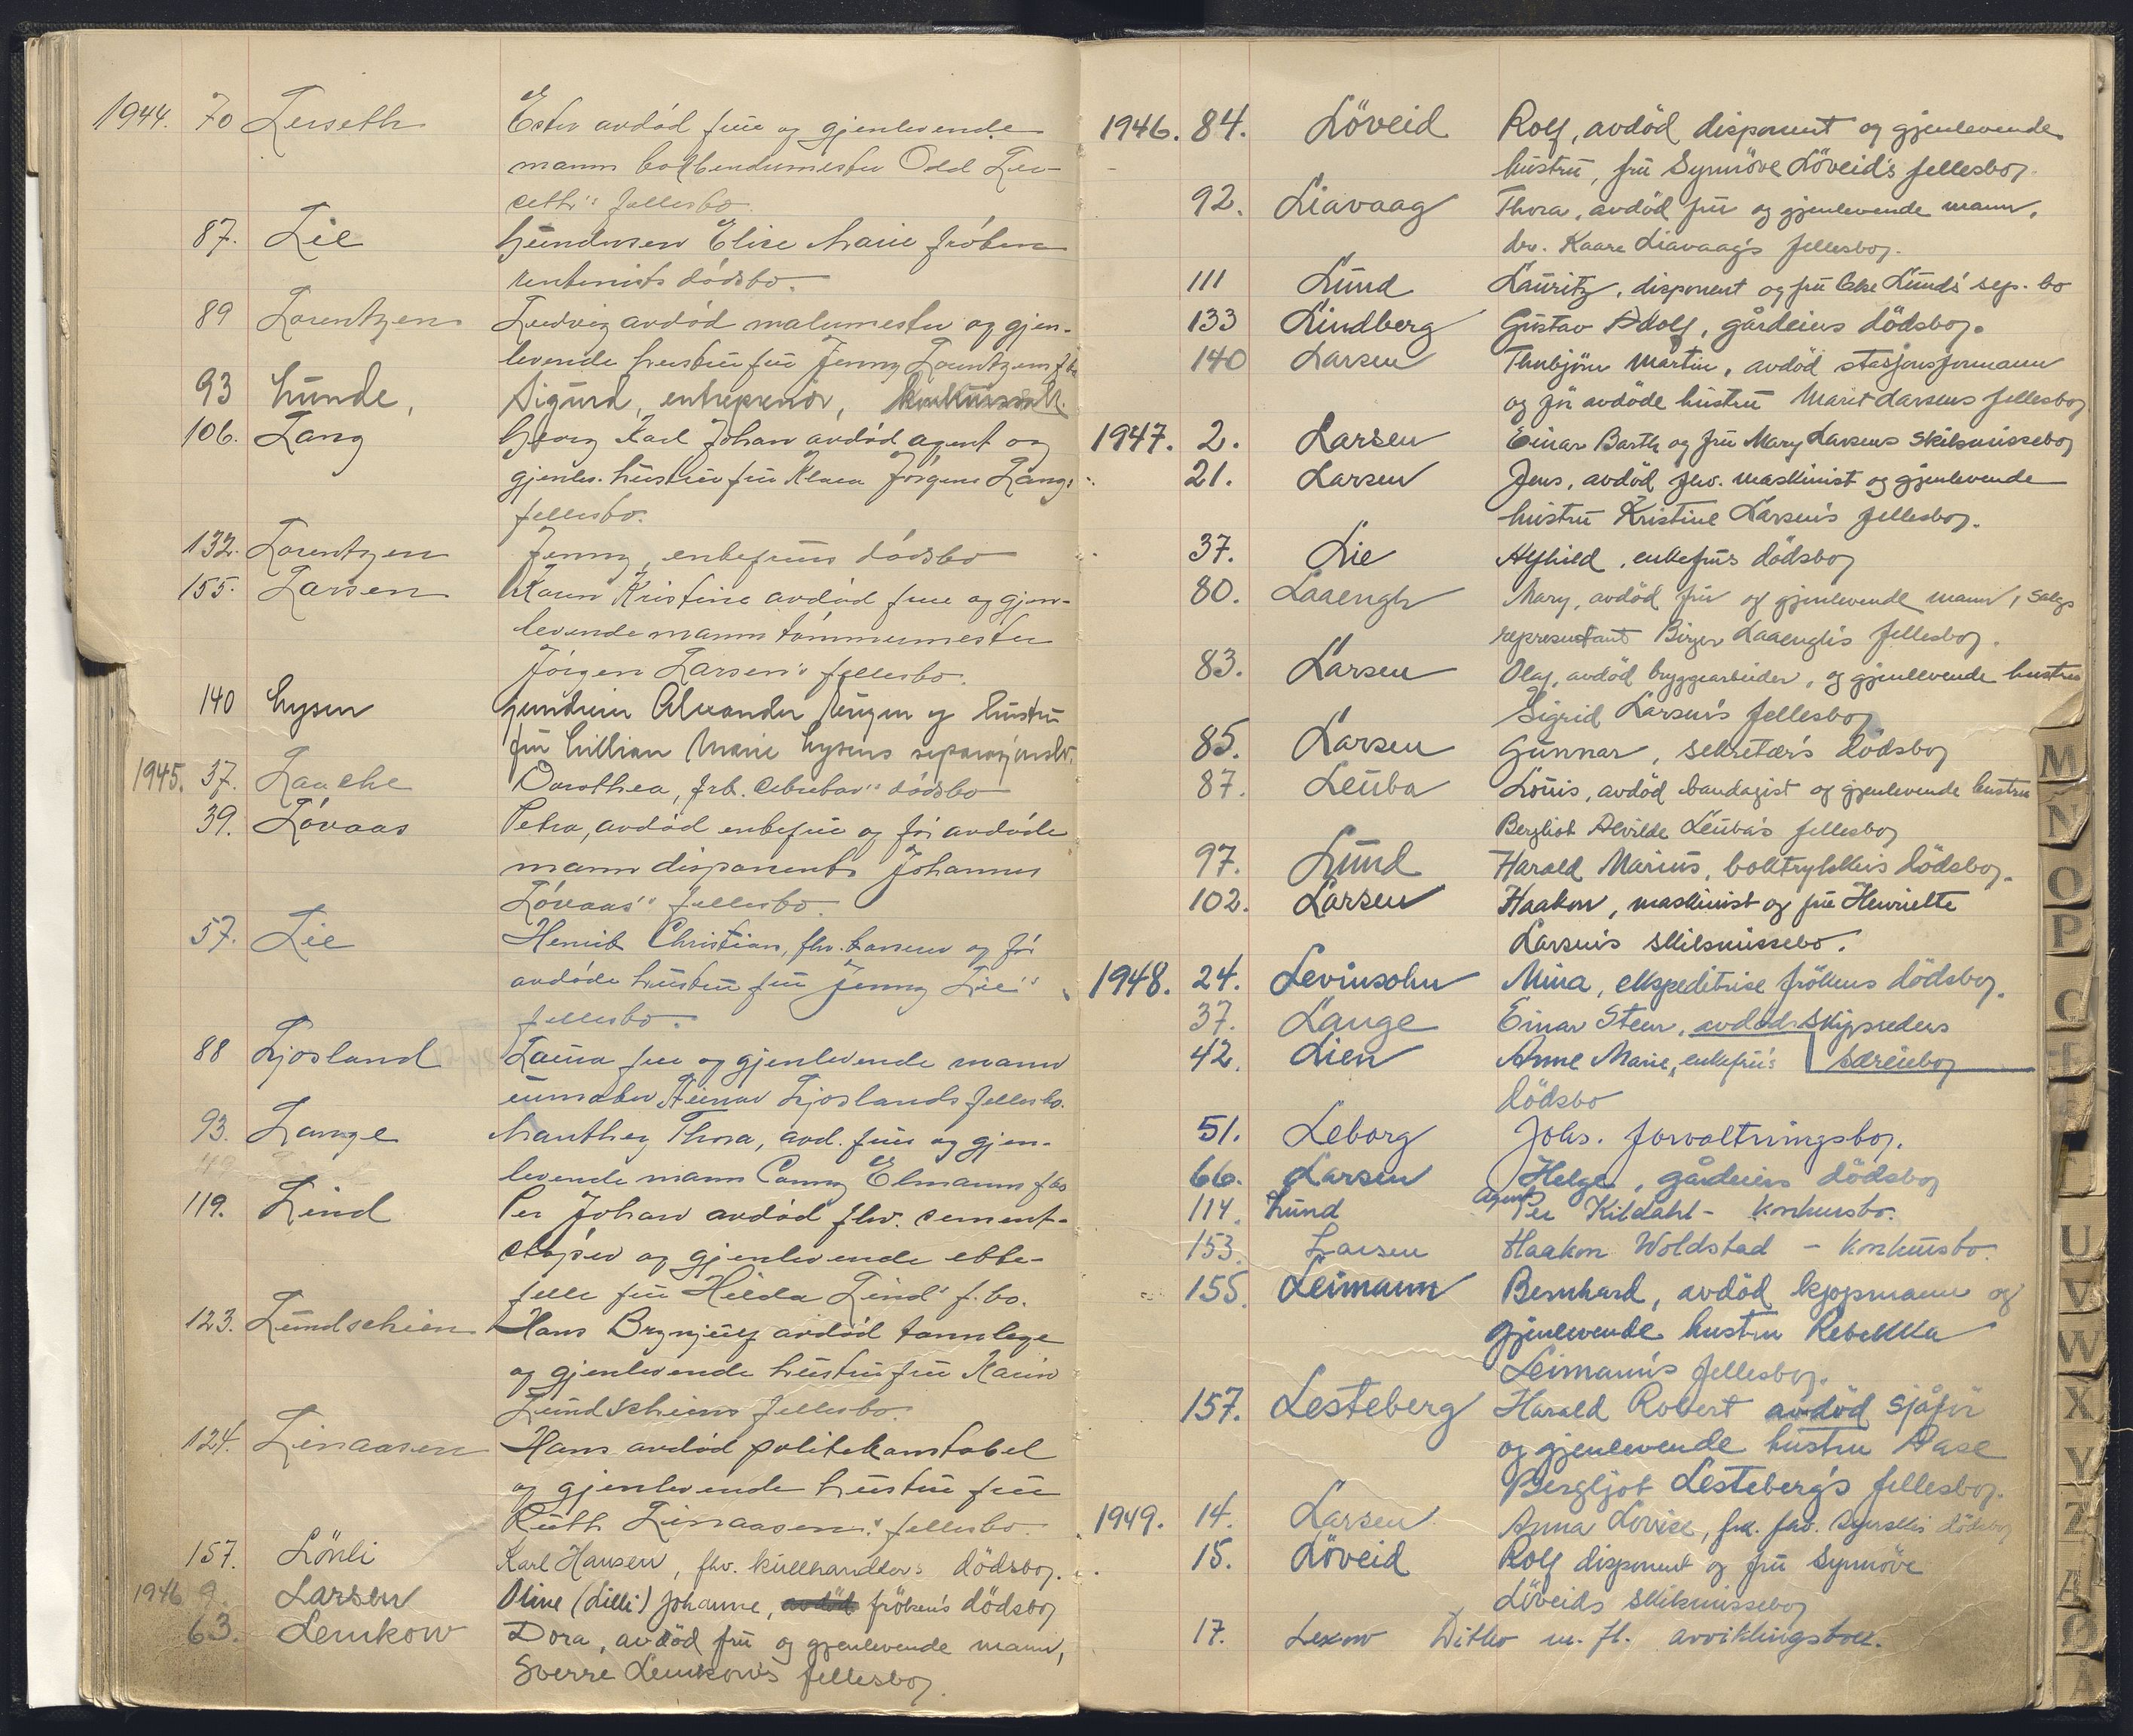 1944. 70 Lerseth Ester avdød frue og gjenlevende
mann Odd Ler-
seth's fellesbo.
87. Lie Gundersen Elise Marie frøken
rentenists dødsbo.
89 Lorentzen Ludvig avdød malermester og gjen-
levende hustru fru Jenny Lorentzens f.bo
93 Lunde, Sigurd, entreprenør,
106. Lang Georg Karl Johan avdød agent og
gjenlev. hustru fru Klara Jørgine Lang's
fellesbo.
132. Lorentzen Jenny, enkefrues dødsbo
155. Larsen Karen Kristine avdød frue og gjen-
levende mann tømmermester
Jørgen Larsen's fellesbo.
140 Lysen Alexander og hustru
fru Lillian Marie Lysens separasjonsbo.
1945. 37. Dorothea, dødsbo
39. Løvaas Petra, avdød enkefrue og før avdøde
mann disponent Johannes
Løvaas's fellesbo.
57. Lie Henrik Christian, fhv. og før
avdøde hustru fru Jenny Lie's
fellesbo.
88 Ljosland Laura frue og gjenlevende mann
urmaker Ljoslands fellesbo.
93. Lange Manthey Thora, avd. frue og gjen-
levende mann Conny Elmanns f.bo
119. Lind Per Johan avdød fhv. sement-
støper og gjenlevende ekte-
felle fru Hilda Lind's f.bo.
123. Lundschien Hans Brynjulf avdød tannlege
og gjenlevende hustru fru Karin
Lundschiens fellesbo.
124. Linaasen Hans avdød politikonstabel
og gjenlevende hustru fru
Ruth Linaasen's fellesbo.
157. Lönli Karl Hansen, fhv. kullhandlers dödsboj.
1946 9. Larsen Oline (Lilli) Johanne, avdöd fröken's dödsboj
63. Lemkow Dora, avdöd fru og gjenlevende mann,
Sverre Lemkow's fellesboj.
1946. 84. Löveid Rolf, avdöd disponent og gjenlevende
hustru, fru Synnöve Löveid's fellesboj.
92. Liavaag Thora, avdöd fru og gjenlevende mann,
drv. Kaare Liavaag's fellesboj.
111 Lund Lauritz, disponent og fru Lund's sep. bo
133 Lindberg Gustav Adolf, gårdeiers dödsboj.
140 Larsen Thorbjörn Martin, avdöd stasjonsformann
og för avdöde hustru Marit Larsens fellesboj
1947. 2. Larsen Einar Barth og fru Mary Larsens skilsmisseboj
21. Larsen Jens, avdöd fhv. maskinist og gjenlevende
hustru Kristine Larsen's fellesboj.
37. Lie Alfhild, enkefrus dödsboj
80. Laaengh Mary, avdöd fru og gjenlevende mann, salgs
representant Birger Laaengh's fellesboj.
83. Larsen Olaf, avdöd bryggearbeider, og gjenlevende hustru
Sigrid Larsen's fellesboj
85. Larsen Gunnar, sekretær's dödsboj
87. Leuba Louis, avdöd bandagist og gjenlevende hustru
Bergliot Alvilde Leuba's fellesboj
97. Lund Harald Marius, boktrykkers dödsboj.
102. Larsen Haakon, maskinist og fru Henriette
Larsen's skilsmissebo.
1948. 24. Levinsohn Mina, ekspeditrise frökens dödsboj.
37. Lange Einar Steen, avdöd skipsreders
særeieboj
42. Lien Anne Marie, enkefru's
dödsbo
51. Leborg Johs. forvaltningsboj.
66. Larsen Helge, gårdeiers dödsboj
114. Lund agent Per Kildahl - konkursbo.
153. Larsen Haakon Woldstad - konkursbo.
155. Leimann Bernhard, avdöd kjøpmann og
gjenlevende hustru Rebekka
Leimann's fellesboj.
157. Lesteberg Harald Robert avdöd sjåför
og gjenlevende hustru Aase
Bergljot Lesteberg's fellesboj.
1949. 14. Larsen Anna Lovise, frk. fhv. dödsboj
15. Löveid Rolf disponent og fru Synnöve
Löveids skilsmisseboj
17. Lexow Witho m. fl. avviklingsboer.
M
N
O
P
U
V
W
X
Y
Z
Æ
Ø
Å